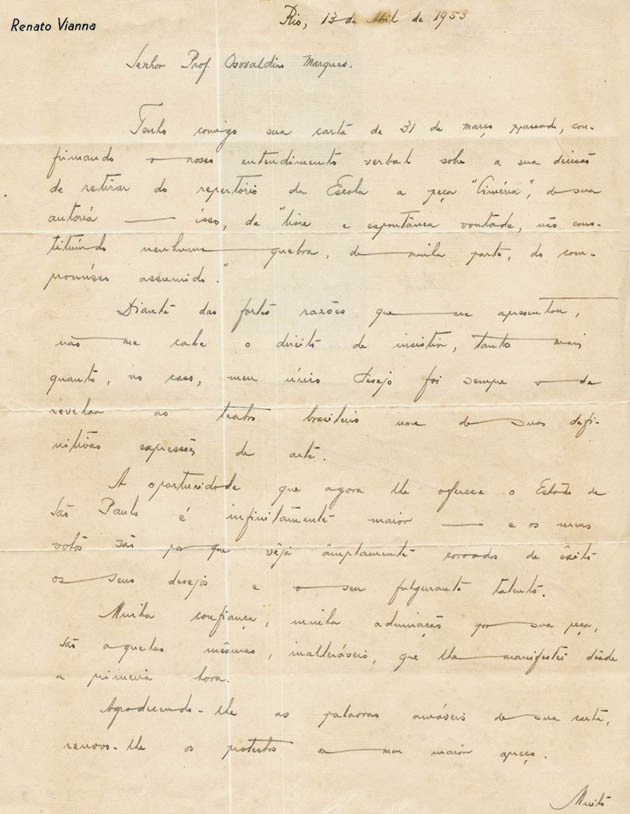 Renato Vianna
Rio, 13 de Abril de 1953
Senhor Prof. Osvaldino Marques.
Tenho comigo sua carta de 31 de março passado, con-
firmando o nosso entendimento verbal sobre a sua decisão
de retirar do repertório da Escola a peça "Ciméria", de sua
autoria — isso, de "livre e espontânea vontade, não cons-
tituindo nenhuma quebra, de minha parte, do com-
promisso assumido."
Diante das fortes razões que me apresentou,
não me cabe o direito de insistir, tanto mais
quanto, no caso, meu único desejo foi sempre o de
revelar ao teatro brasileiro uma de suas defi-
nitivas expressões de arte.
A oportunidade que agora lhe oferece o Estado de
São Paulo é infinitamente maior — e os meus
votos são por que veja amplamente coroados de êxito
os seus desejos e o seu fulgurante talento.
Minha confiança, minha admiração por sua peça,
são aquelas mesmas, inalteráveis, que lhe manifestei desde
a primeira hora.
Agradecendo-lhe as palavras amáveis de sua carta,
renovo-lhe os protestos em meu maior apreço.
Muito